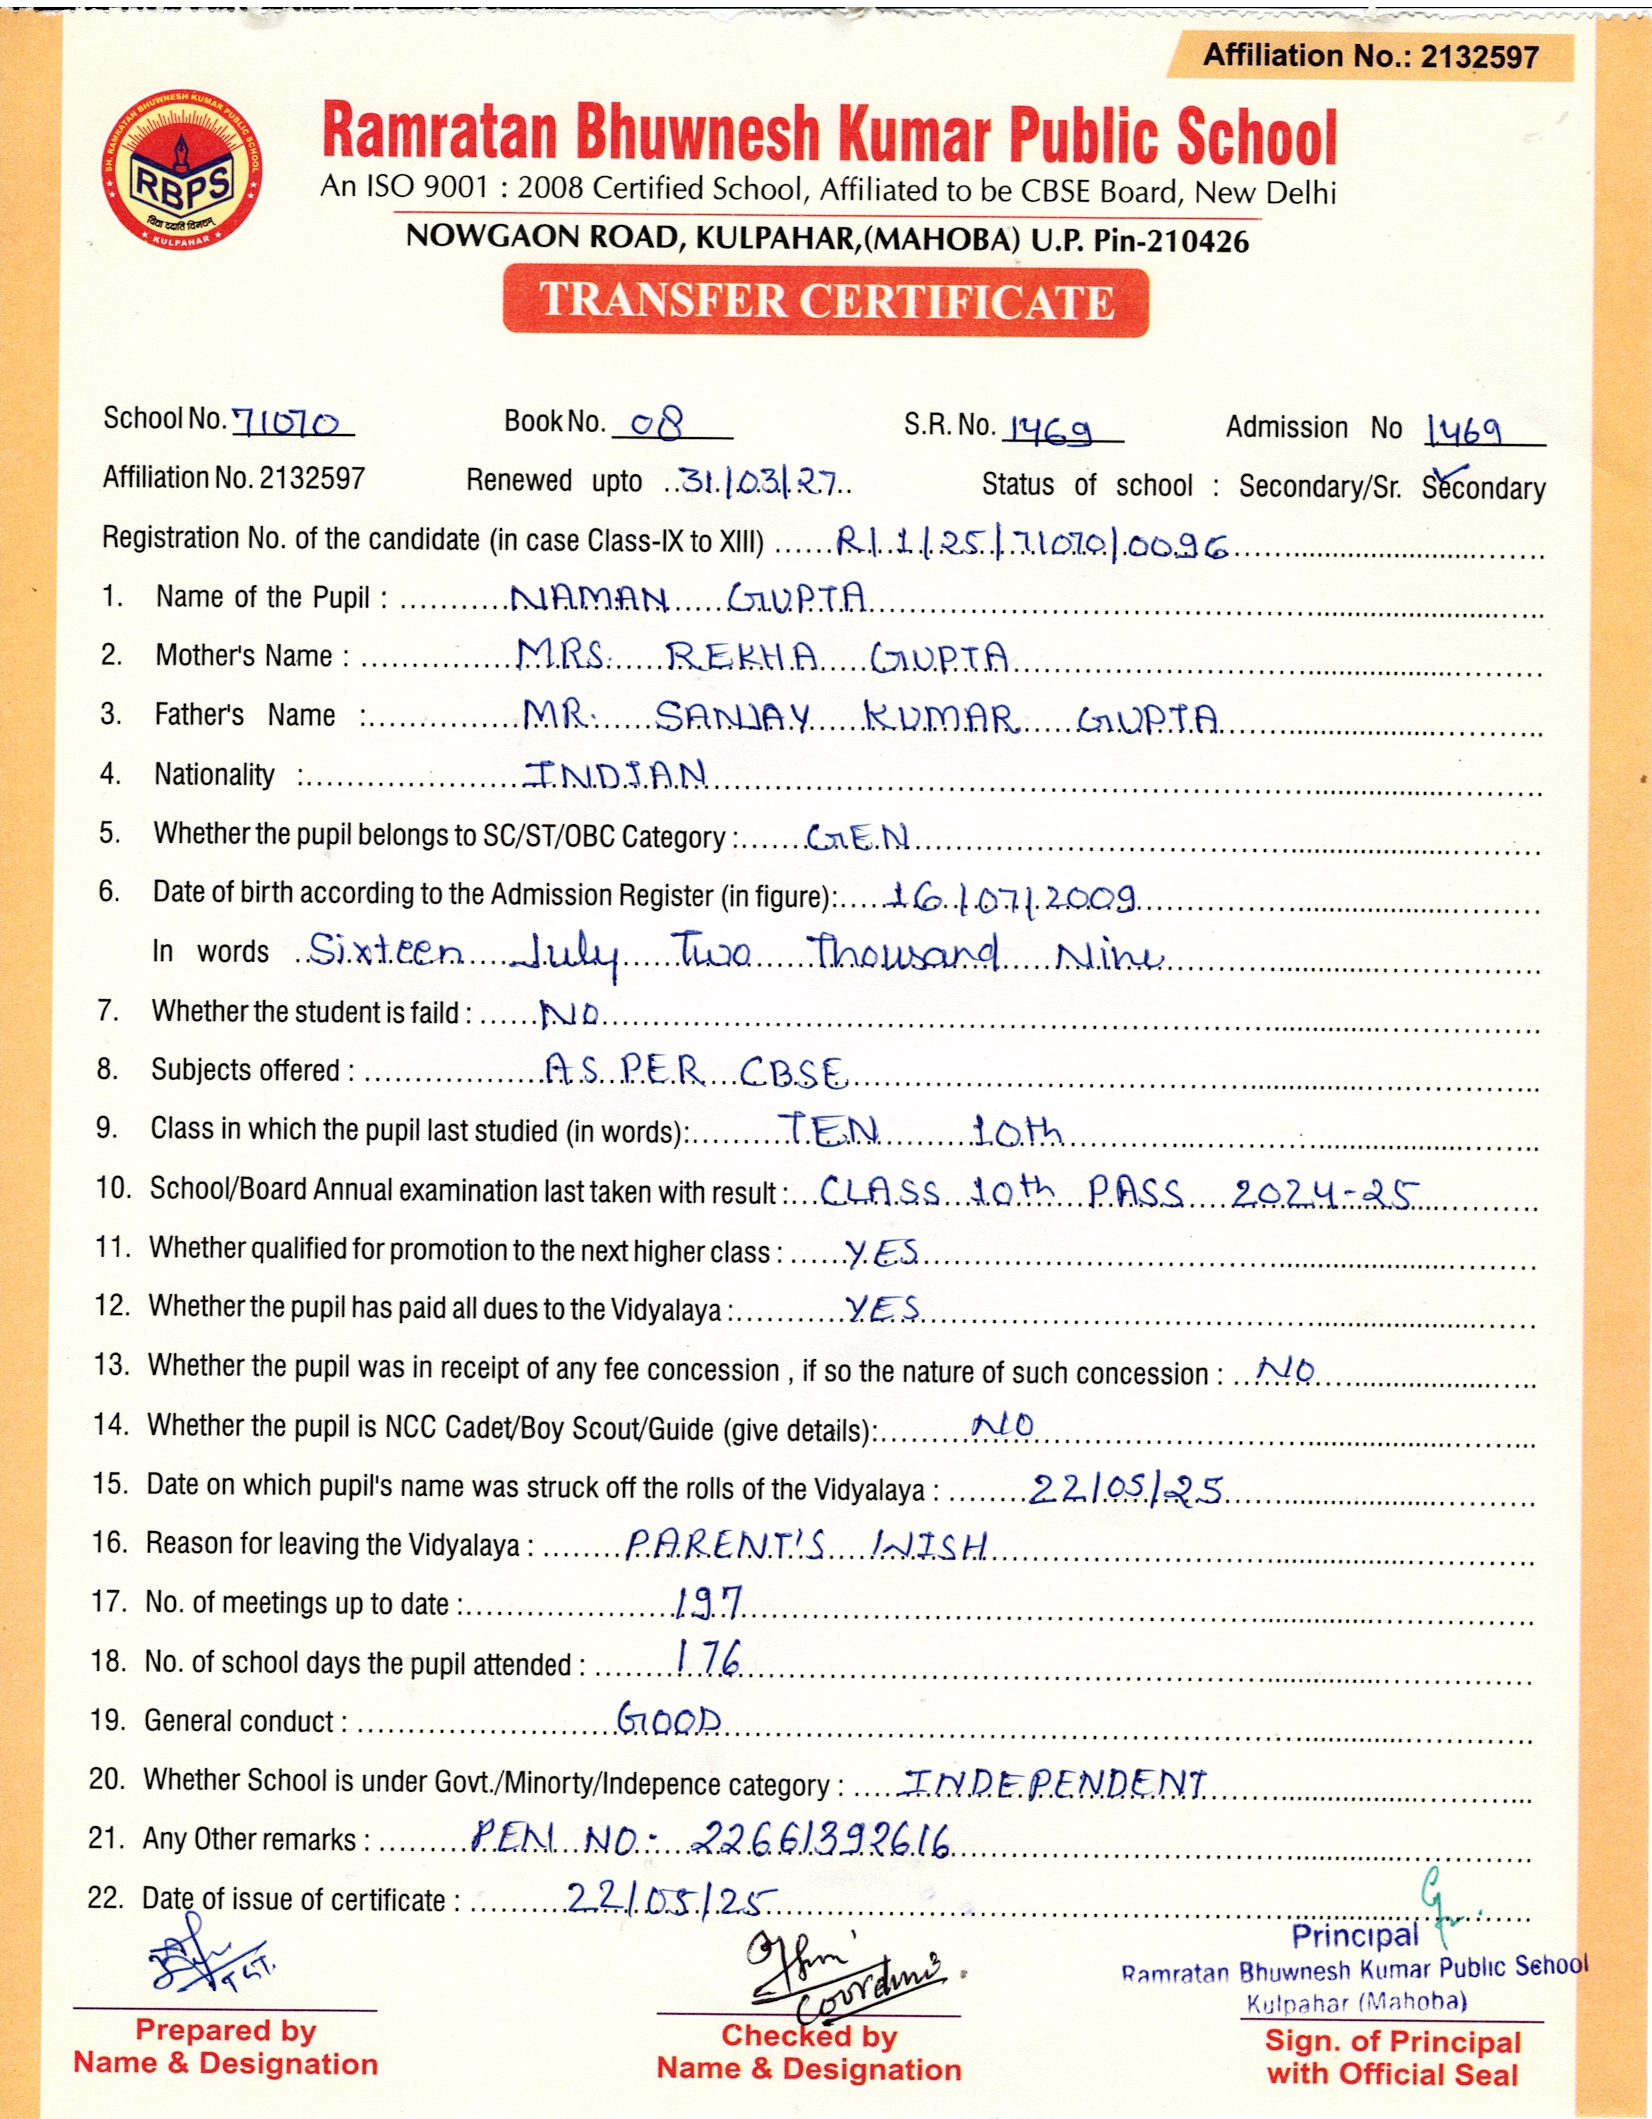 Affiliation No.: 2132597
SH. RAMRATAN BHUWNESH KUMAR PUBLIC SCHOOL
RBPS
विद्या ददाति विनयम्
KULPAHAR
Ramratan Bhuwnesh Kumar Public School
An ISO 9001 : 2008 Certified School, Affiliated to be CBSE Board, New Delhi
NOWGAON ROAD, KULPAHAR,(MAHOBA) U.P. Pin-210426
TRANSFER CERTIFICATE
School No. 71070 Book No. 08 S.R. No. 1469 Admission No 1469
Affiliation No. 2132597 Renewed upto 31/03/27 Status of school : Secondary/Sr. Secondary
Registration No. of the candidate (in case Class-IX to XIII) R/1/25/71070/0096
1. Name of the Pupil : NAMAN GUPTA
2. Mother's Name : MRS. REKHA GUPTA
3. Father's Name : MR. SANJAY KUMAR GUPTA
4. Nationality : INDIAN
5. Whether the pupil belongs to SC/ST/OBC Category : GEN
6. Date of birth according to the Admission Register (in figure): 16/07/2009
In words Sixteen July Two Thousand Nine
7. Whether the student is faild : NO
8. Subjects offered : AS PER CBSE
9. Class in which the pupil last studied (in words): TEN 10th
10. School/Board Annual examination last taken with result : CLASS 10th PASS 2024-25
11. Whether qualified for promotion to the next higher class : YES
12. Whether the pupil has paid all dues to the Vidyalaya : YES
13. Whether the pupil was in receipt of any fee concession , if so the nature of such concession : NO
14. Whether the pupil is NCC Cadet/Boy Scout/Guide (give details): NO
15. Date on which pupil's name was struck off the rolls of the Vidyalaya : 22/05/25
16. Reason for leaving the Vidyalaya : PARENT'S WISH
17. No. of meetings up to date : 197
18. No. of school days the pupil attended : 176
19. General conduct : GOOD
20. Whether School is under Govt./Minorty/Indepence category : INDEPENDENT
21. Any Other remarks : PEN NO:- 22661392616
22. Date of issue of certificate : 22/05/25
TGT.
Principal
Ramratan Bhuwnesh Kumar Public School
Kulpahar (Mahoba)
Prepared by
Name & Designation
Checked by
Name & Designation
Sign. of Principal
with Official Seal